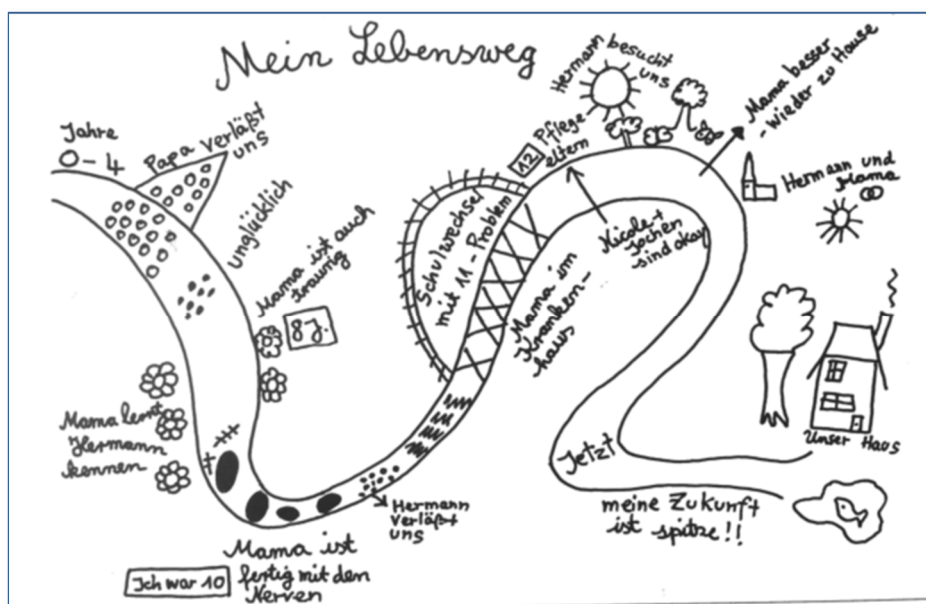 Mein Lebensweg
Jahre
0-4
Papa verläßt
uns
unglücklich
Mama ist auch
traurig
8 J.
Mama lernt
Hermann
kennen
Ich war 10
Mama ist
fertig mit den
Nerven
Hermann
verläßt
uns
Schulwechsel
mit 11 - Problem
Mama im
Kranken-
haus
12
Pflege-
eltern
Nicole +
Jochen
sind okay
Hermann besucht
uns
Mama besser
- wieder zu Hause
Hermann und
Mama
Jetzt
Unser Haus
meine Zukunft
ist spitze!!